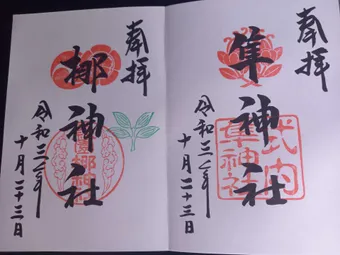 奉拝
隼神社
令和三年
十月二十三日
式内
隼神社
奉拝
梛神社
令和三年
十月二十三日